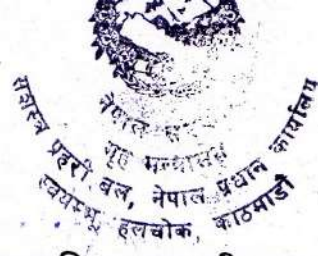 नेपाल
गृह मन्त्रालय
सशस्त्र प्रहरी बल, नेपाल प्रधान कार्यालय
स्वयम्भू हलचोक, काठमाडौं